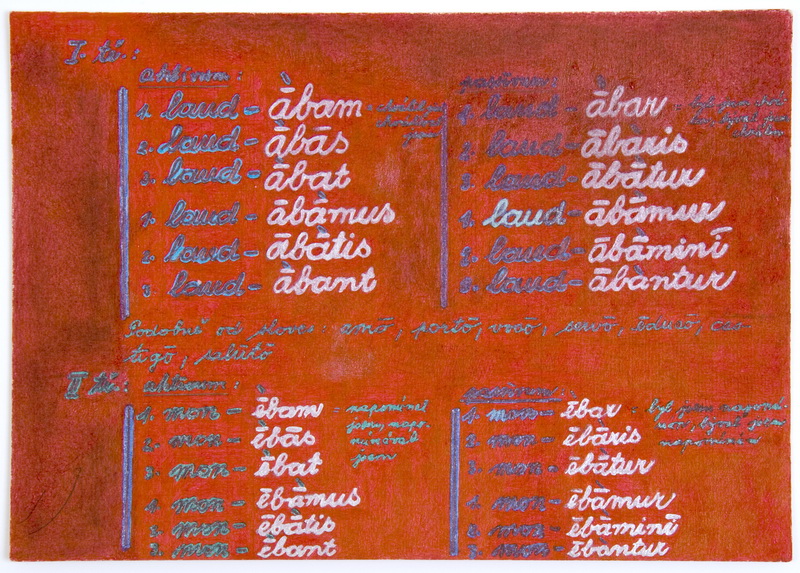 I. tř.:
aktivum:
1. laud - ābam = chválil jsem
2. laud - ābās
3. laud - ābat
1. laud - ābāmus
2. laud - ābātis
3. laud - ābant
pasivum:
1. laud - ābar = byl jsem
2. laud - ābāris
3. laud - ābātur
1. laud - ābāmur
2. laud - ābāminī
3. laud - ābāntur
Podobně od sloves: amō, portō, vocō, servō, ēducō, cas
tīgō, salūtō
II. tř.: aktivum:
1. mon - ēbam = napomínal
jsem, napo-
mínával
jsem
2. mon - ēbās
3. mon - ēbat
1. mon - ēbāmus
2. mon - ēbātis
3. mon - ēbant
pasivum:
1. mon - ēbar = byl jsem napomí-
nán, býval jsem
napomínán
2. mon - ēbāris
3. mon - ēbātur
1. mon - ēbāmur
2. mon - ēbāminī
3. mon - ēbantur